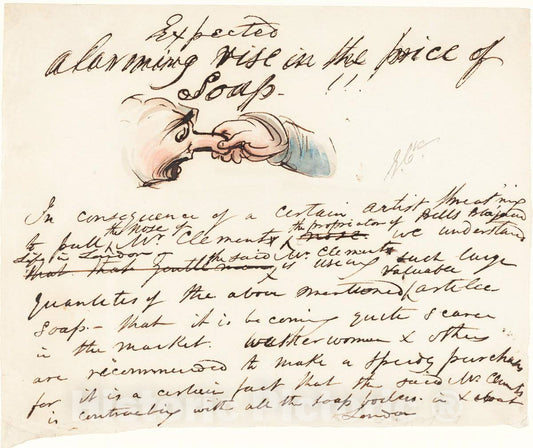 Expected
alarming rise in the price of
Soap - !!
In consequence of a certain artist threat'nig
to pull the Nose of Mr Clement x the proprietor of Bells
Life in London we understand
the said Mr Clement is using such large
quantities of the above mentioned valuable article
Soap - that it is becoming quite scarce
in the market. washerwomen & others
are recommended to make a speedy purchase
for it is a certain fact that the said Mr Clement
is contracting with all the soap boilers in & about
London